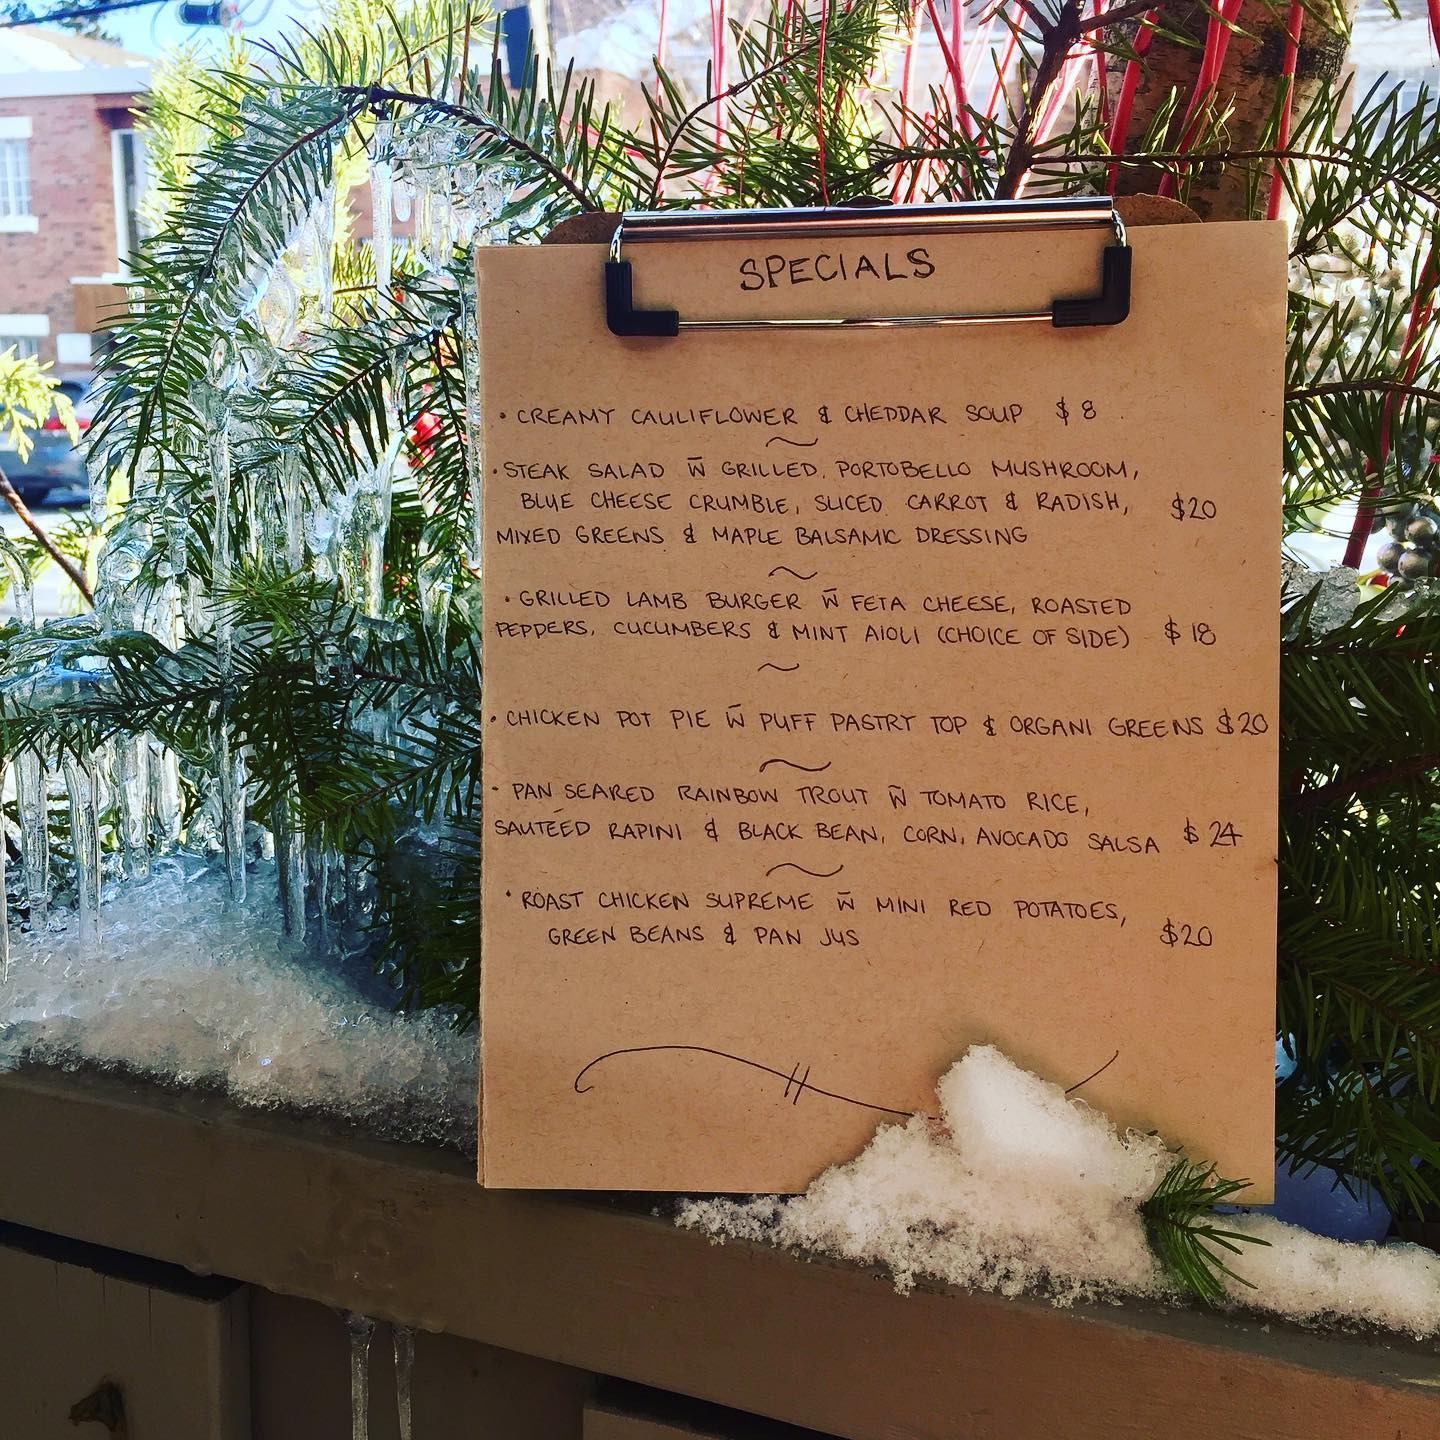 SPECIALS
• CREAMY CAULIFLOWER & CHEDDAR SOUP $8
• STEAK SALAD w̄ GRILLED PORTOBELLO MUSHROOM,
BLUE CHEESE CRUMBLE, SLICED CARROT & RADISH, $20
MIXED GREENS & MAPLE BALSAMIC DRESSING
• GRILLED LAMB BURGER w̄ FETA CHEESE, ROASTED
PEPPERS, CUCUMBERS & MINT AIOLI (CHOICE OF SIDE) $18
• CHICKEN POT PIE w̄ PUFF PASTRY TOP & ORGANI GREENS $20
• PAN SEARED RAINBOW TROUT w̄ TOMATO RICE,
SAUTÉED RAPINI & BLACK BEAN, CORN, AVOCADO SALSA $24
• ROAST CHICKEN SUPREME w̄ MINI RED POTATOES,
GREEN BEANS & PAN JUS $20